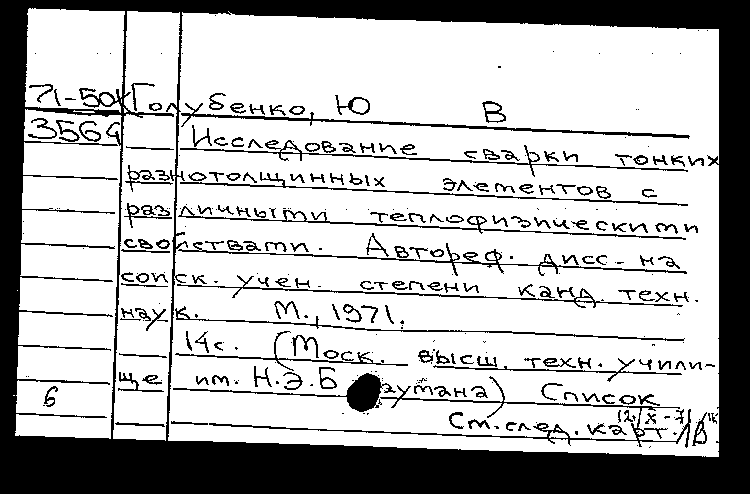 71-50к Голубенко, Ю В
3564 Исследование сварки тонких
разнотолщинных элементов с
различными теплофизическими
свойствами. Автореф. дисс. на
соиск. учен. степени канд. техн.
наук. М., 1971.
14с. (Моск. высш. техн. учили-
ще им. Н.Э.Б аумана) Список
6 См. след. карт.